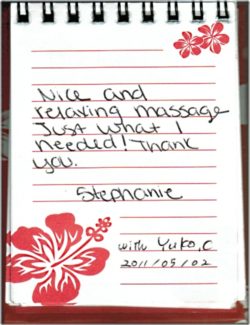 Nice and
relaxing massage
Just what I
needed! Thank
you.
Stephanie
with Yuko.C
2011/05/02